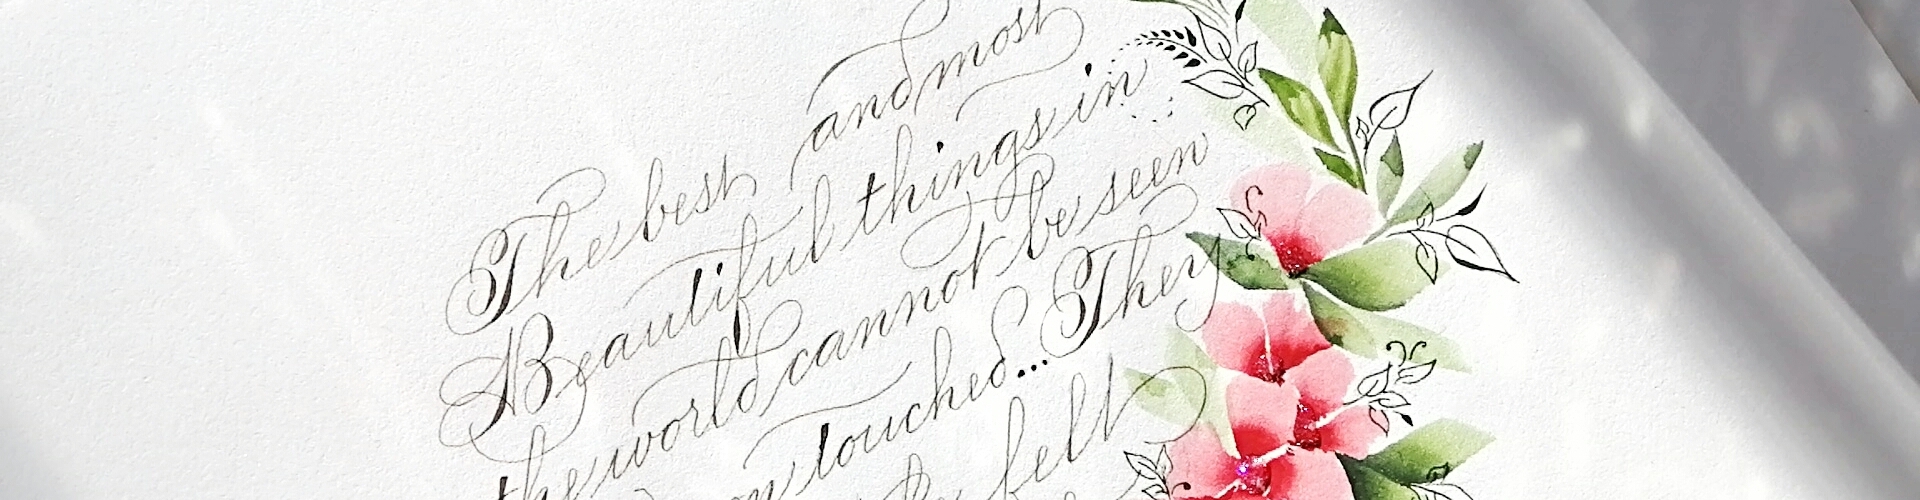 The best and most
Beautiful things in
the world cannot be seen
touched... They
felt